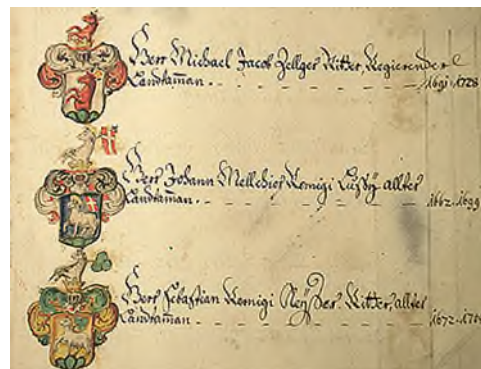 Herr Michael Jacob Zellger Ritter, Regierender
Landtam̄an. . - - - - - - 1691. 1728
Herr Johann Mellchior Remigi Lussÿ allter
Landtam̄an. - - - - - - 1662. 1699
Herr Sebastian Remigi Keÿser. Ritter, allter
Landtam̄an - - - - - - 1672.